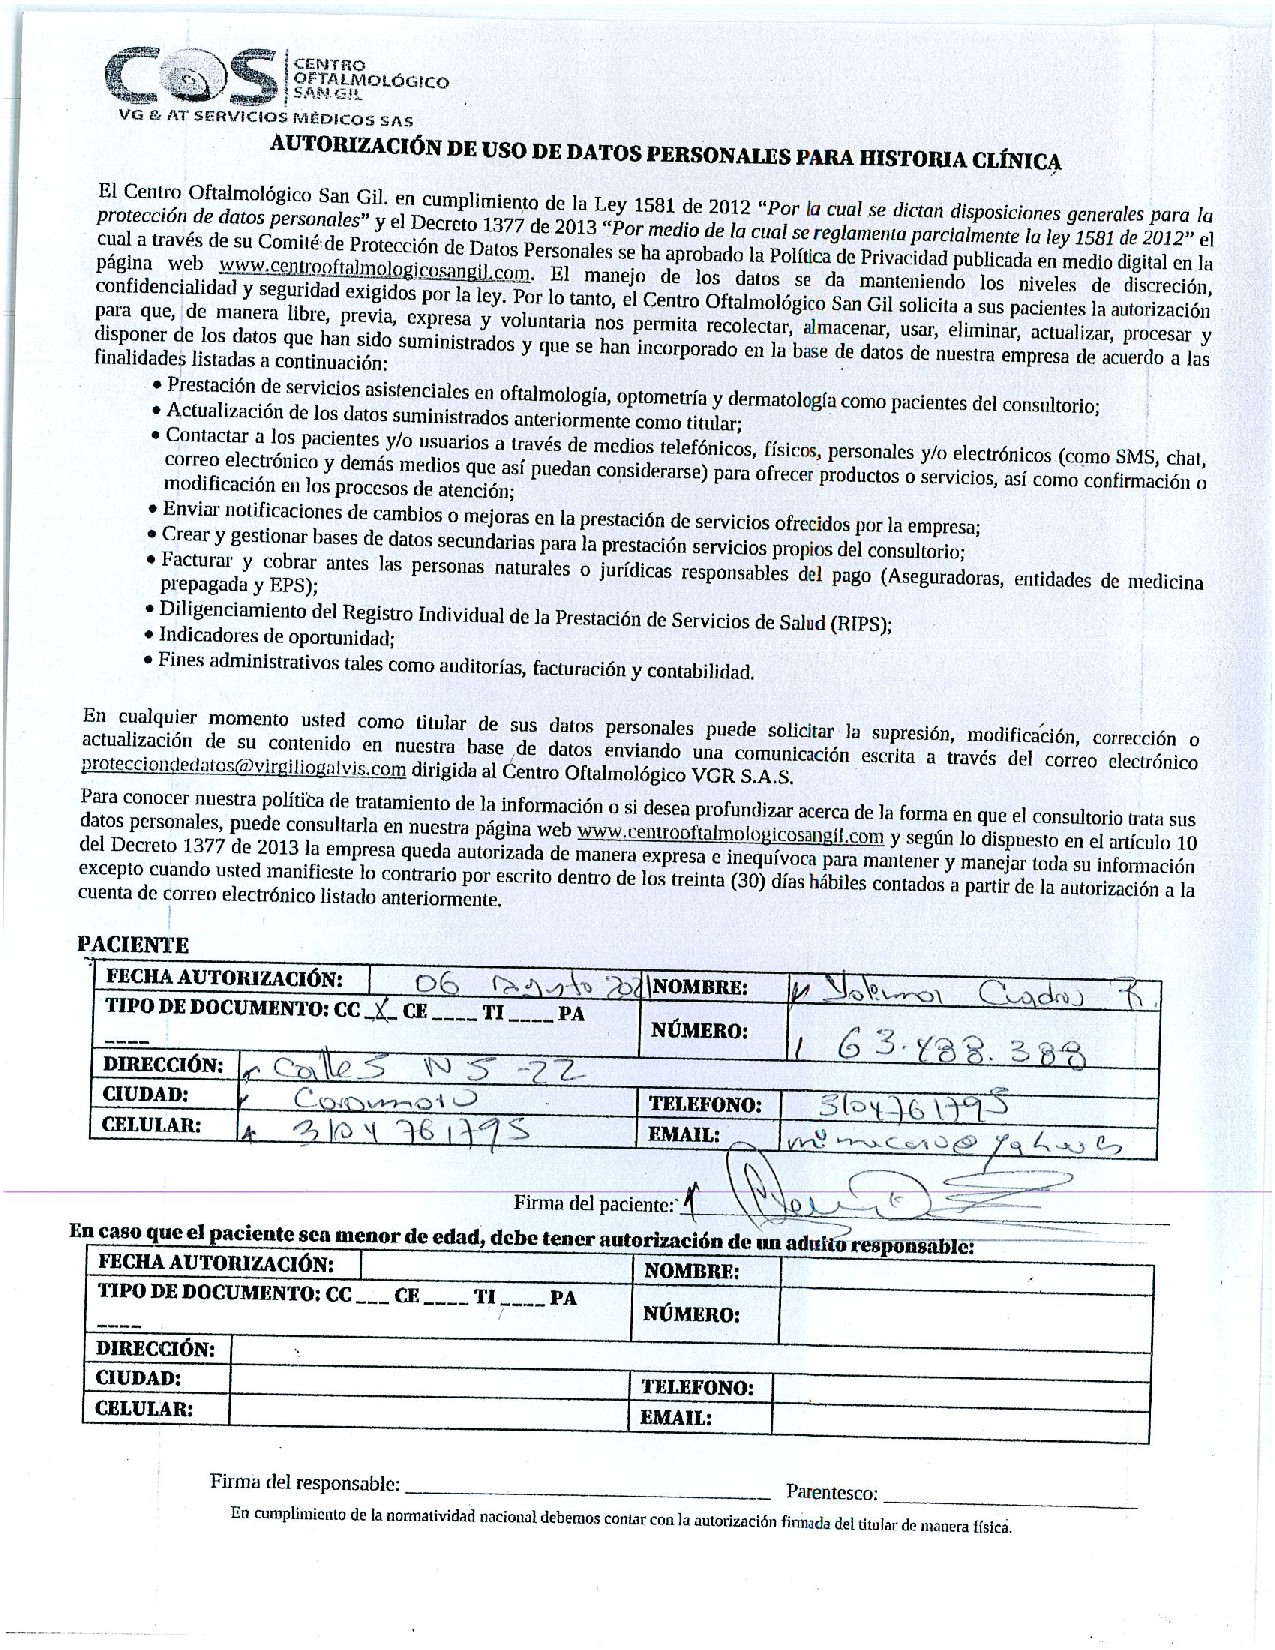 COS CENTRO
OFTALMOLÓGICO
SAN GIL
VG & AT SERVICIOS MÉDICOS SAS
AUTORIZACIÓN DE USO DE DATOS PERSONALES PARA HISTORIA CLÍNICA
El Centro Oftalmológico San Gil. en cumplimiento de la Ley 1581 de 2012 “Por la cual se dictan disposiciones generales para la
protección de datos personales” y el Decreto 1377 de 2013 “Por medio de la cual se reglamenta parcialmente la ley 1581 de 2012” el
cual a través de su Comité de Protección de Datos Personales se ha aprobado la Política de Privacidad publicada en medio digital en la
página web www.centrooftalmologicosangil.com. El manejo de los datos se da manteniendo los niveles de discreción,
confidencialidad y seguridad exigidos por la ley. Por lo tanto, el Centro Oftalmológico San Gil solicita a sus pacientes la autorización
para que, de manera libre, previa, expresa y voluntaria nos permita recolectar, almacenar, usar, eliminar, actualizar, procesar y
disponer de los datos que han sido suministrados y que se han incorporado en la base de datos de nuestra empresa de acuerdo a las
finalidades listadas a continuación:
• Prestación de servicios asistenciales en oftalmología, optometría y dermatología como pacientes del consultorio;
• Actualización de los datos suministrados anteriormente como titular;
• Contactar a los pacientes y/o usuarios a través de medios telefónicos, físicos, personales y/o electrónicos (como SMS, chat,
correo electrónico y demás medios que así puedan considerarse) para ofrecer productos o servicios, así como confirmación o
modificación en los procesos de atención;
• Enviar notificaciones de cambios o mejoras en la prestación de servicios ofrecidos por la empresa;
• Crear y gestionar bases de datos secundarias para la prestación servicios propios del consultorio;
• Facturar y cobrar antes las personas naturales o jurídicas responsables del pago (Aseguradoras, entidades de medicina
prepagada y EPS);
• Diligenciamiento del Registro Individual de la Prestación de Servicios de Salud (RIPS);
• Indicadores de oportunidad;
• Fines administrativos tales como auditorías, facturación y contabilidad.
En cualquier momento usted como titular de sus datos personales puede solicitar la supresión, modificación, corrección o
actualización de su contenido en nuestra base de datos enviando una comunicación escrita a través del correo electrónico
protecciondedatos@virgiliogalvis.com dirigida al Centro Oftalmológico VGR S.A.S.
Para conocer nuestra política de tratamiento de la información o si desea profundizar acerca de la forma en que el consultorio trata sus
datos personales, puede consultarla en nuestra página web www.centrooftalmologicosangil.com y según lo dispuesto en el artículo 10
del Decreto 1377 de 2013 la empresa queda autorizada de manera expresa e inequívoca para mantener y manejar toda su información
excepto cuando usted manifieste lo contrario por escrito dentro de los treinta (30) días hábiles contados a partir de la autorización a la
cuenta de correo electrónico listado anteriormente.
PACIENTE
FECHA AUTORIZACIÓN: 06 agosto NOMBRE: Cuadros R.
TIPO DE DOCUMENTO: CC _X_ CE ____ TI ____ PA ____ NÚMERO: 63.488.388
DIRECCIÓN: Calle 5 N 5-22
CIUDAD: TELEFONO: 3104761795
CELULAR: 3104761795 EMAIL:
Firma del paciente:
En caso que el paciente sea menor de edad, debe tener autorización de un adulto responsable:
FECHA AUTORIZACIÓN: NOMBRE:
TIPO DE DOCUMENTO: CC ___ CE ____ TI ____ PA ____ NÚMERO:
DIRECCIÓN:
CIUDAD: TELEFONO:
CELULAR: EMAIL:
Firma del responsable: ____ Parentesco: ____
En cumplimiento de la normatividad nacional debemos contar con la autorización firmada del titular de manera física.